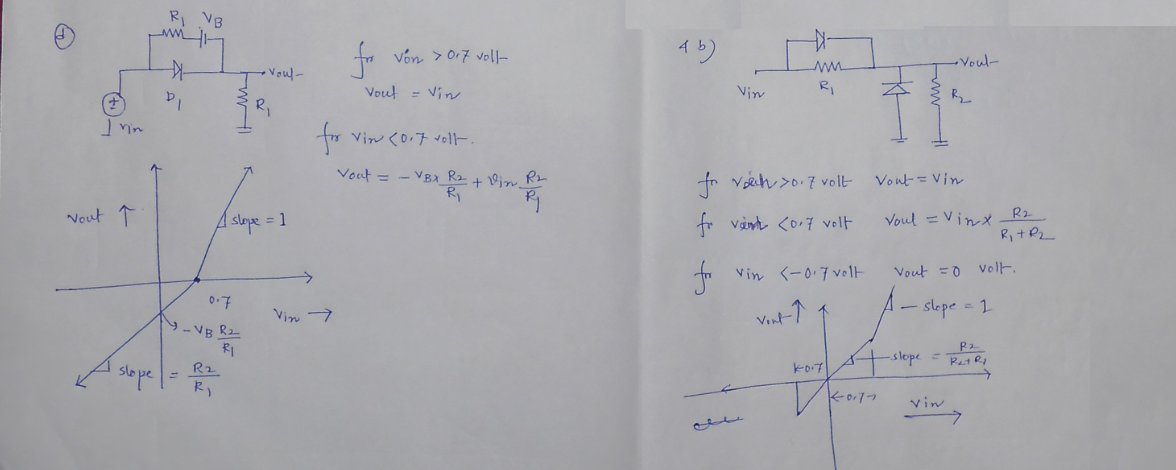 d
R1 VB
Vout
D1
R1
Vin
for Vin > 0.7 volt
Vout = Vin
for Vin < 0.7 volt.
Vout = - VB x R2/R1 + Vin R2/R1
Vout ↑
slope = 1
0.7
Vin →
- VB R2/R1
slope = R2/R1
4 b)
Vout
Vin
R1
R2
for > 0.7 volt Vout = Vin
for < 0.7 volt Vout = Vin x R2/R1+R2
for Vin < -0.7 volt Vout = 0 volt.
Vout ↑
slope = 1
slope = R2/R2+R1
-0.7
0.7
Vin